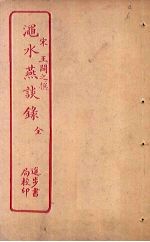 宋 王闢之撰
澠水燕談錄
仝
進步書
局校印